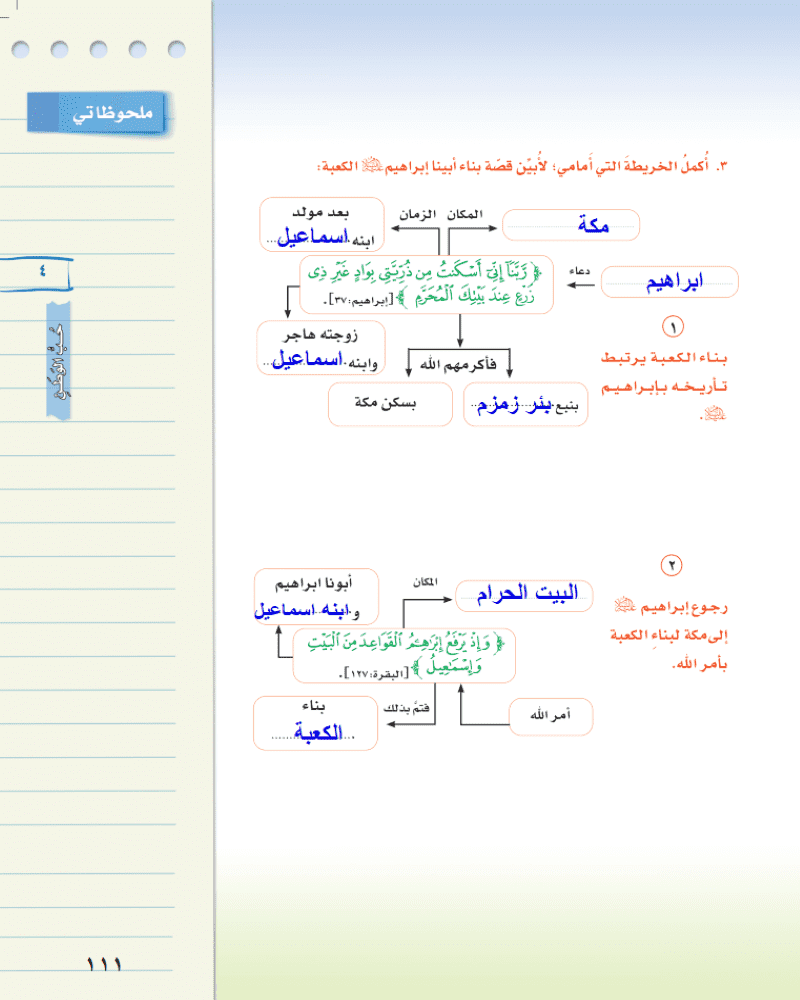 ملحوظاتي
٣. أُكملُ الخريطةَ التي أَمامي؛ لأُبيّن قصّة بناء أبينا إبراهيم ﷺ الكعبة:
المكان
مكة
الزمان
بعد مولد
ابنه اسماعيل
دعاء
ابراهيم
﴿ رَّبَّنَآ إِنِّيٓ أَسْكَنتُ مِن ذُرِّيَّتِي بِوَادٍ غَيْرِ ذِي
زَرْعٍ عِندَ بَيْتِكَ ٱلْمُحَرَّمِ ﴾ [إبراهيم: ٣٧].
١
بناء الكعبة يرتبط
تأريخه بإبراهيم
ﷺ.
زوجته هاجر
وابنه اسماعيل
فأكرمهم الله
بنبع بئر زمزم
بسكن مكة
٤
حُبُّ الوَطَنِ
٢
رجوع إبراهيم ﷺ
إلى مكة لبناءِ الكعبة
بأمر الله.
المكان
البيت الحرام
أبونا ابراهيم
و ابنه اسماعيل
﴿ وَإِذْ يَرْفَعُ إِبْرَٰهِـۧمُ ٱلْقَوَاعِدَ مِنَ ٱلْبَيْتِ
وَإِسْمَٰعِيلُ ﴾ [البقرة: ١٢٧].
أمر الله
فتمَّ بذلك
بناء
الكعبة
١١١